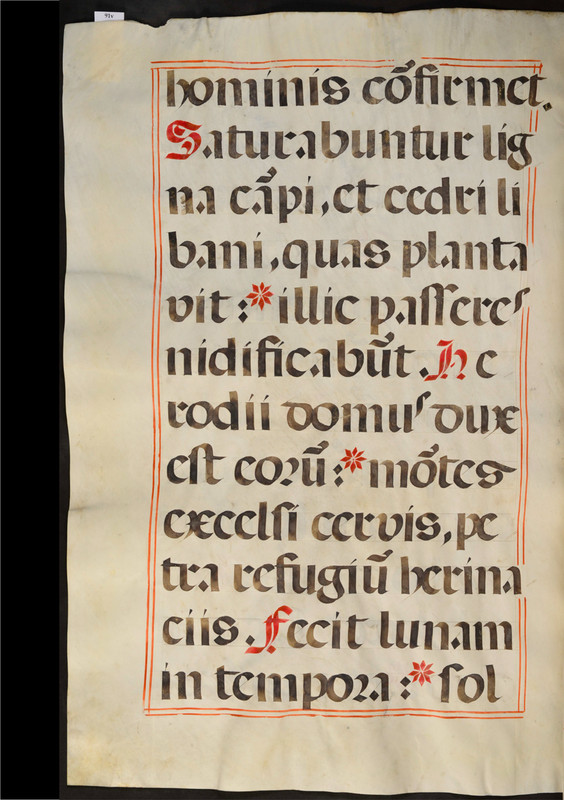 91v
hominis cõfirmet.
Saturabuntur lig
na cãpi, et cedri li
bani, quas planta
vit :* illic passeres
nidificabũt. He
rodii domus dux
est eorũ :* mõtes
excelsi cervis, pe
tra refugiũ herina
ciis. Fecit lunam
in tempora :* sol